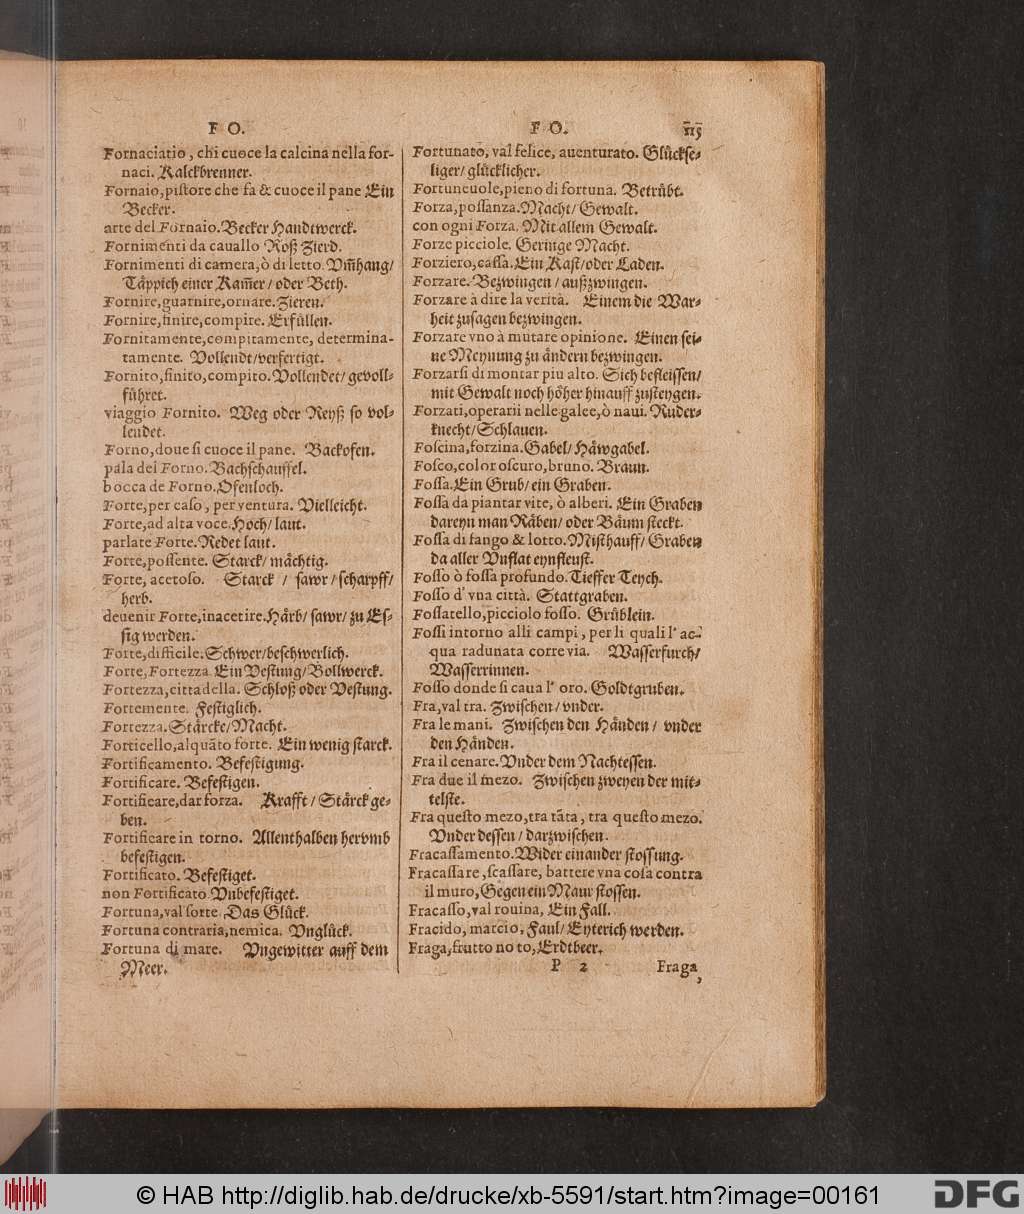 F O.
Fornaciatio, chi cuoce la calcina nella for-
naci. Kalckbrenner.
Fornaio, piſtore che fa & cuoce il pane Ein
Becker.
arte del Fornaio. Becker Handtwerck.
Fornimenti da cauallo Roß Zierd.
Fornimenti di camera, ò di letto. Vm̃hang/
Taͤppich einer Kam̃er / oder Beth.
Fornire, guarnire, ornare. Zieren.
Fornire, finire, compire. Erfuͤllen.
Fornitamente, compitamente, determina-
tamente. Vollendt/verfertigt.
Fornito, finito, compito. Vollendet/ gevoll-
fuͤhret.
viaggio Fornito. Weg oder Reyß so vol-
lendet.
Forno, doue ſi cuoce il pane. Backofen.
pala del Forno. Bachſchauffel.
bocca de Forno. Ofenloch.
Forte, per caſo, per ventura. Vielleicht.
Forte, ad alta voce. Hoch/ laut.
parlate Forte. Redet laut.
Forte, poſſente. Starck/ maͤchtig.
Forte, acetoſo. Starck / ſawr / ſcharpff/
herb.
deuenir Forte, inacetire. Haͤrb/ ſawr/ zu Eſ-
ſig werden.
Forte, difficile. Schwer/beſchwerlich.
Forte, Fortezza. Ein Veſtung/ Bollwerck.
Fortezza, cittadella. Schloß oder Veſtung.
Fortemente. Feſtiglich.
Fortezza. Staͤrcke/ Macht.
Forticello, alquãto forte. Ein wenig ſtarck.
Fortificamento. Befeſtigung.
Fortificare. Befeſtigen.
Fortificare, dar forza. Krafft / Staͤrck ge-
ben.
Fortificare in torno. Allenthalben hervmb
befeſtigen.
Fortificato. Befeſtiget.
non Fortificato Vnbefeſtiget.
Fortuna, val ſorte. Das Gluͤck.
Fortuna contraria, nemica. Vngluͤck.
Fortuna di mare. Vngewitter auff dem
Meer.
F O. 115
Fortunato, val felice, auenturato. Gluͤckſe-
liger/ gluͤcklicher.
Fortuneuole, pieno di fortuna. Betruͤbt.
Forza, poſſanza. Macht/ Gewalt.
con ogni Forza. Mit allem Gewalt.
Forze picciole. Geringe Macht.
Forziero, caſſa. Ein Kaſt/oder Laden.
Forzare. Bezwingen / außzwingen.
Forzare à dire la verità. Einem die War-
heit zuſagen bezwingen.
Forzare vno à mutare opinione. Einen ſei-
ne Meynung zu aͤndern bezwingen.
Forzarſi di montar piu alto. Sich befleiſſen/
mit Gewalt noch hoͤher hinauff zuſteygen.
Forzati, operarii nelle galee, ò naui. Ruder-
knecht/ Schlauen.
Foſcina, forzina. Gabel/ Haͤwgabel.
Foſco, color oſcuro, bruno. Braun.
Foſſa. Ein Grub/ ein Graben.
Foſſa da piantar vite, ò alberi. Ein Graben
dareyn man Raͤben/ oder Baͤum ſteckt.
Foſſa di fango & lotto. Miſthauff/ Graben
da aller Vnflat eynfleuſt.
Foſſo ò foſſa profundo. Tieffer Teych.
Foſſo d' vna città. Stattgraben.
Foſſatello, picciolo foſſo. Gruͤblein.
Foſſi intorno alli campi, per li quali l' ac-
qua radunata corre via. Waſſerfurch/
Waſſerrinnen.
Foſſo donde ſi caua l' oro. Goldtgruben.
Fra, val tra. Zwiſchen/ vnder.
Fra le mani. Zwiſchen den Haͤnden / vnder
den Haͤnden.
Fra il cenare. Vnder dem Nachteſſen.
Fra due il mezo. Zwiſchen zweyen der mit-
telſte.
Fra queſto mezo, tra tãta, tra queſto mezo.
Vnder deſſen / darzwiſchen.
Fracaſſamento. Wider einander ſtoſſung.
Fracaſſare, ſcaſſare, battere vna coſa contra
il muro, Gegen ein Maur ſtoſſen.
Fracaſſo, val rouina, Ein Fall.
Fracido, marcio, Faul/ Eyterich werden.
Fraga, frutto no to, Erdtbeer.
P 2 Fraga,
© HAB http://diglib.hab.de/drucke/xb-5591/start.htm?image=00161
DFG